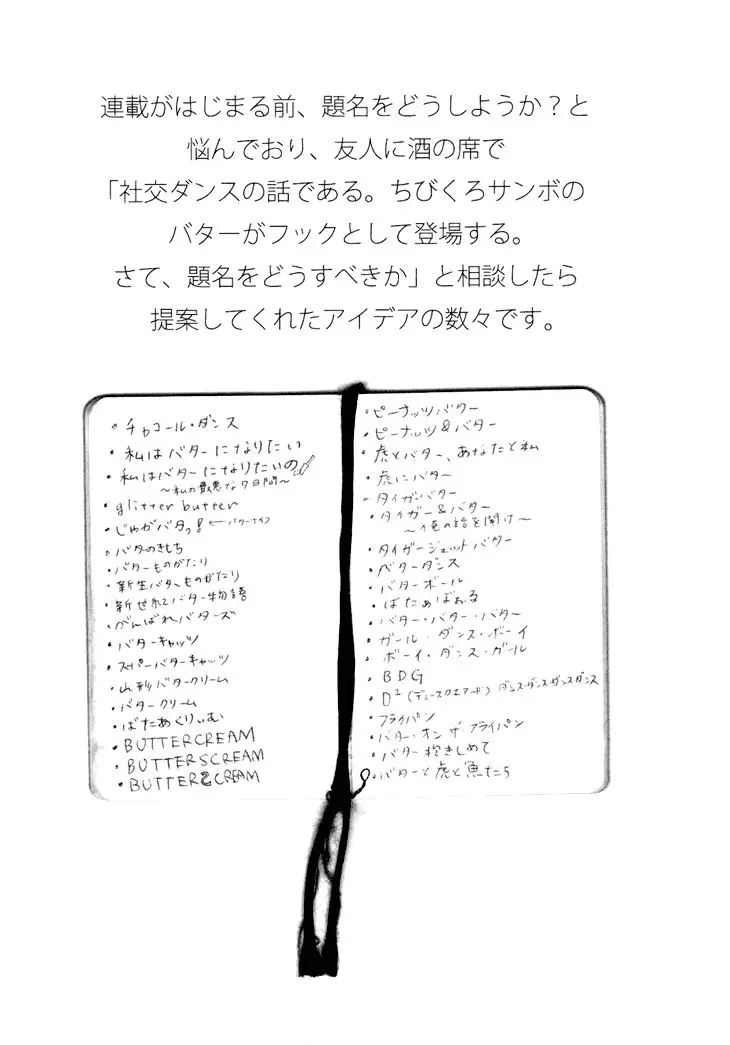 連載がはじまる前、題名をどうしようか？と
悩んでおり、友人に酒の席で
「社交ダンスの話である。ちびくろサンボの
バターがフックとして登場する。
さて、題名をどうすべきか」と相談したら
提案してくれたアイデアの数々です。
・チャコール・ダンス
・私はバターになりたい
・私はバターになりたいの
〜私の最悪な7日間〜
・glitter butter
・じゃがバタっ! ←バターナイフ
・バタのきもち
・バターものがたり
・新生バターものがたり
・新世紀バター物語
・がんばれバターズ
・バターキャッツ
・スーパーバターキャッツ
・山形バタークリーム
・バタークリーム
・ばたあくりぃむ
・BUTTERCREAM
・BUTTERSCREAM
・BUTTER2CREAM
・ピーナッツバター
・ピーナッツ&バター
・虎とバター、あなたと私
・虎にバター
・タイガーバター
・タイガー&バター
〜俺の話を聞け〜
・タイガージェットバター
・ベターダンス
・バターボール
・ばたぁぼぉる
・バター・バター・バター
・ガール・ダンス・ボーイ
・ボーイ・ダンス・ガール
・BDG
・D² (ディースクエアード) ダンス・ダンス・ダンスダンス
・フライパン
・バター・オン ザ フライパン
・バター抱きしめて
・バターと虎と魚たち